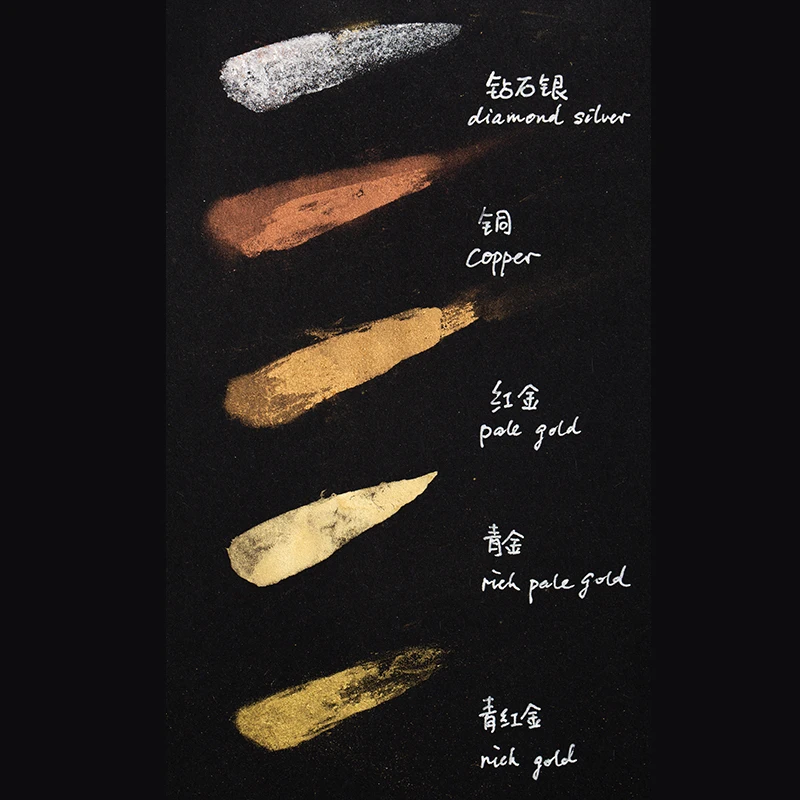 钻石银
diamond silver
铜
Copper
红金
pale gold
青金
rich pale gold
青红金
rich gold